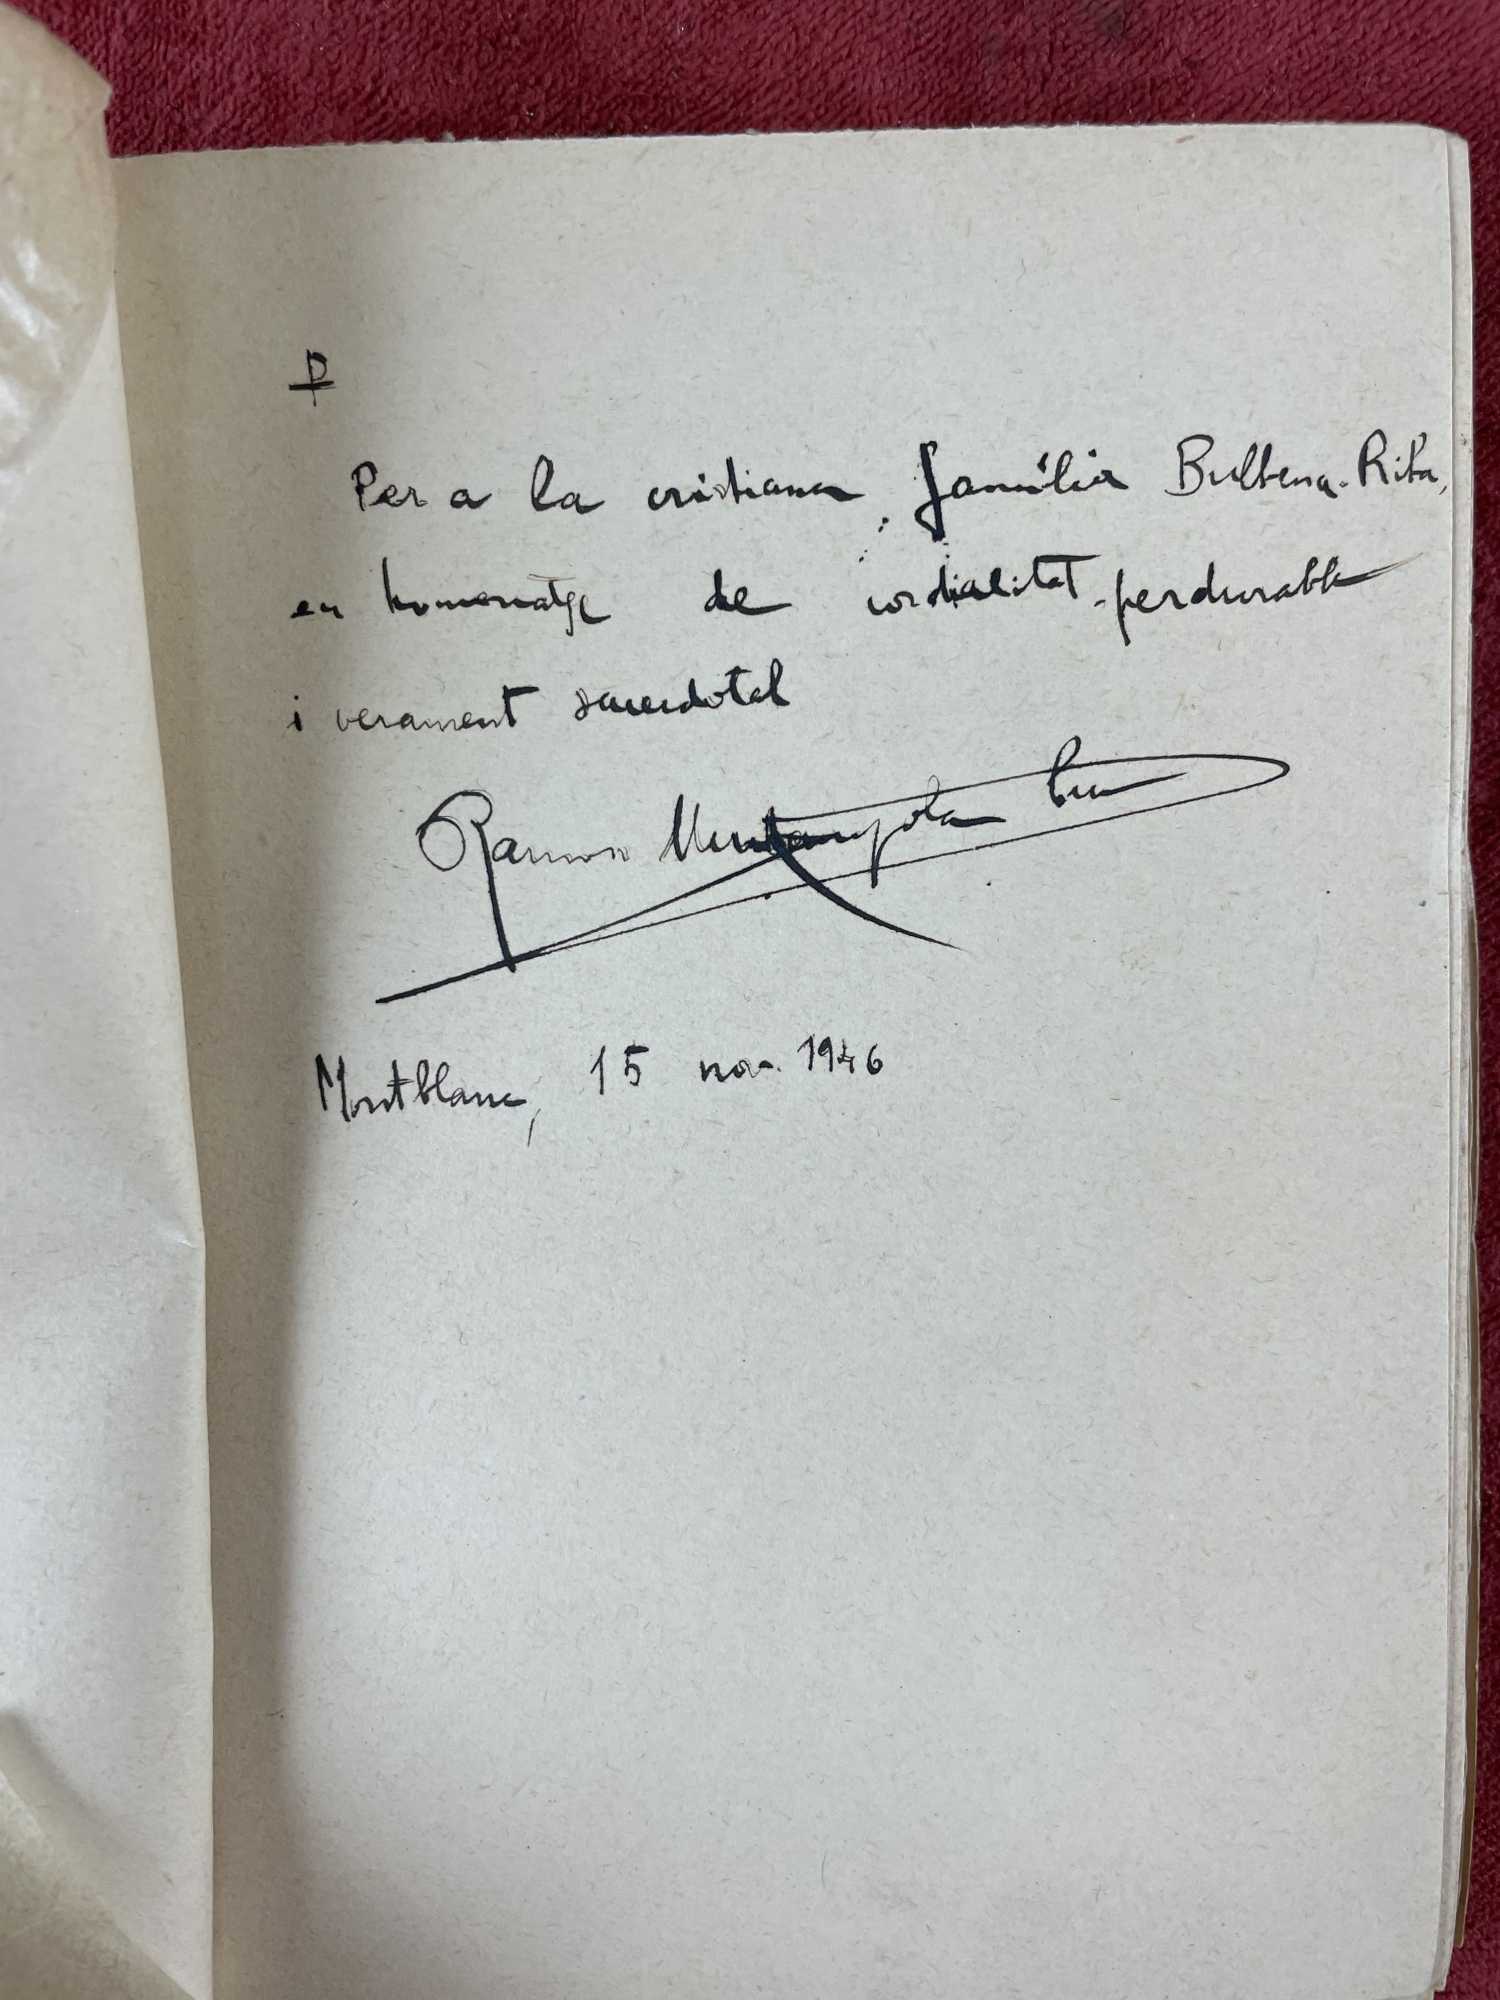 Per a la cristiana família Bulbena-Rita,
en homenatge de cordialitat perdurable
i verament sacerdotal
Ramon Muntanyola
Montblanc, 15 nov. 1946